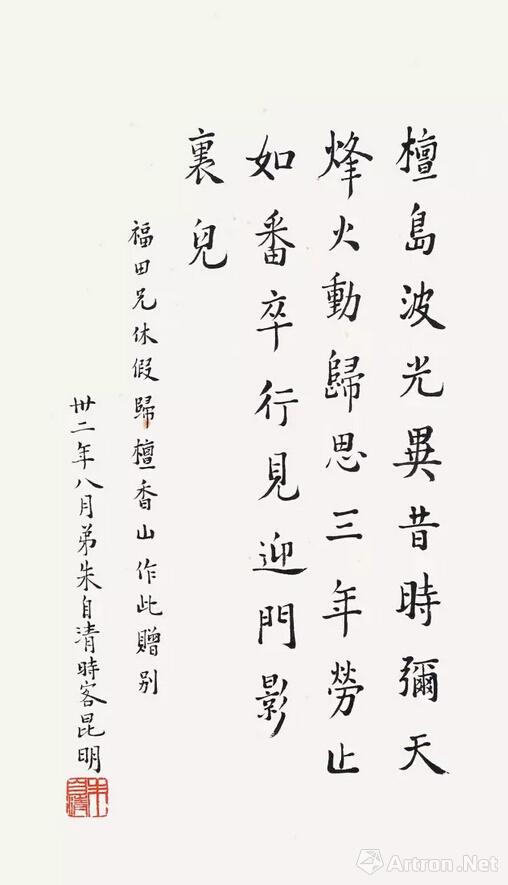 檀島波光異昔時彌天
烽火動歸思三年勞止
如番卒行見迎門影
裏兒
福田兄休假歸檀香山作此贈別
卅二年八月弟朱自清時客昆明
朱自清
Artron.Net